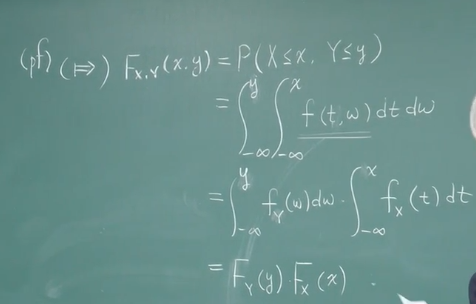 (pf) (⇒) F_{X,Y}(x,y) = P(X≤x, Y≤y)
= ∫_{-∞}^{y} ∫_{-∞}^{x} f(t,w) dt dw
= ∫_{-∞}^{y} f_Y(w) dw · ∫_{-∞}^{x} f_X(t) dt
= F_Y(y) · F_X(x) .